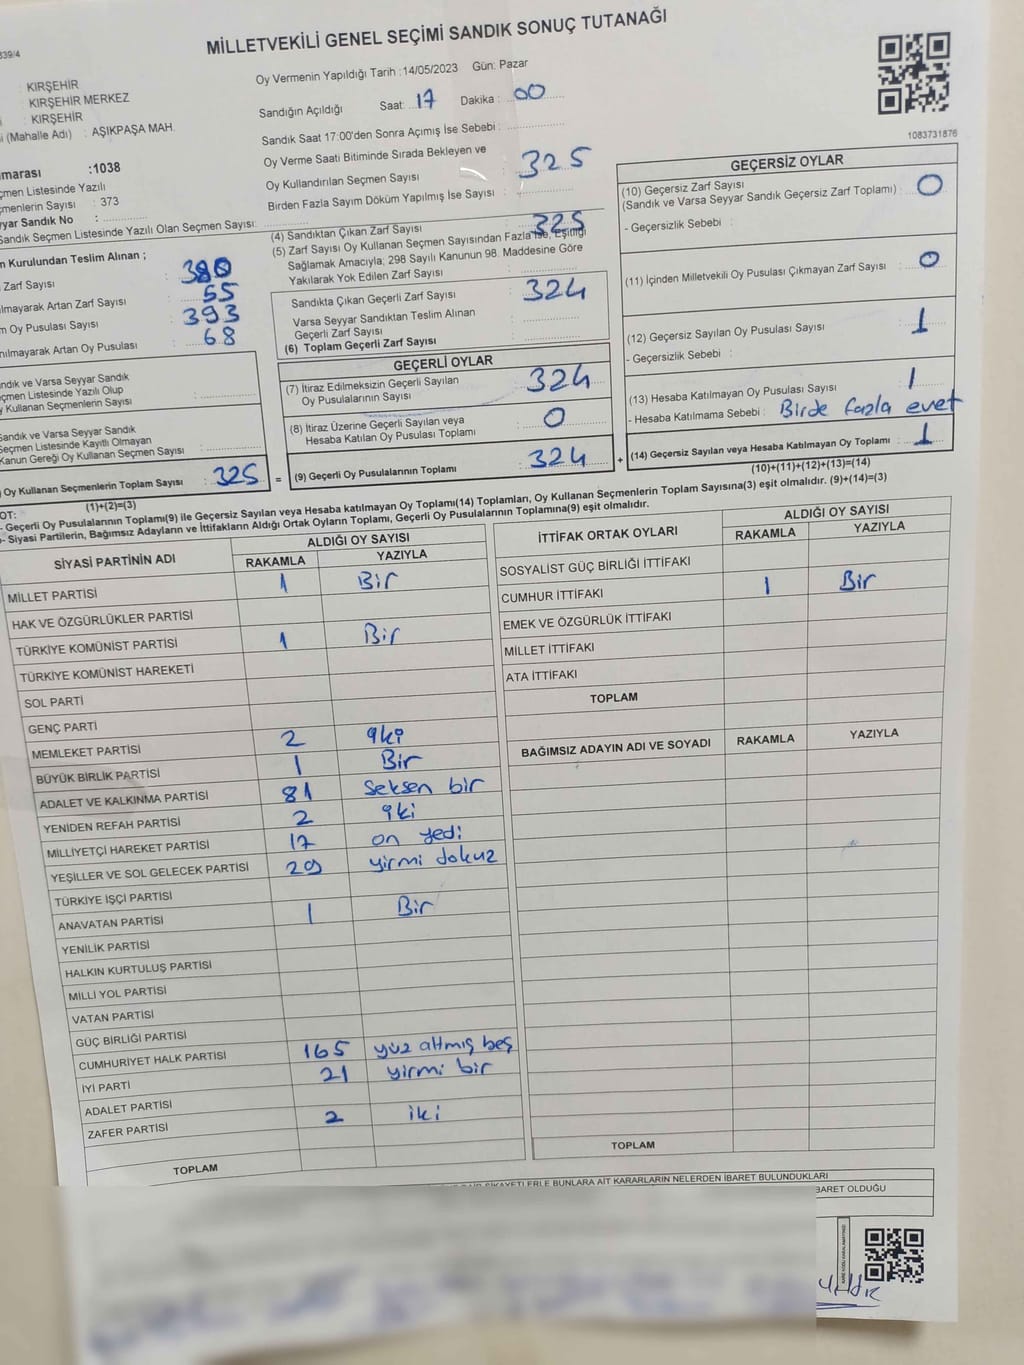 339/4
MİLLETVEKİLİ GENEL SEÇİMİ SANDIK SONUÇ TUTANAĞI
: KIRŞEHİR
: KIRŞEHİR MERKEZ
: KIRŞEHİR
i (Mahalle Adı) : AŞIKPAŞA MAH.
Oy Vermenin Yapıldığı Tarih : 14/05/2023 Gün: Pazar
Sandığın Açıldığı Saat: 17 Dakika : 00
Sandık Saat 17:00'den Sonra Açımış İse Sebebi :
Oy Verme Saati Bitiminde Sırada Bekleyen ve
Oy Kullandırılan Seçmen Sayısı : 325
Birden Fazla Sayım Döküm Yapılmış İse Sayısı :
1083731876
marası :1038
çmen Listesinde Yazılı
çmenlerin Sayısı : 373
yyar Sandık No :
Sandık Seçmen Listesinde Yazılı Olan Seçmen Sayısı:
n Kurulundan Teslim Alınan ;
Zarf Sayısı : 380
ılmayarak Artan Zarf Sayısı : 55
m Oy Pusulası Sayısı : 393
nılmayarak Artan Oy Pusulası : 68
ndık ve Varsa Seyyar Sandık
çmen Listesinde Yazılı Olup
y Kullanan Seçmenlerin Sayısı :
andık ve Varsa Seyyar Sandık
Seçmen Listesinde Kayıtlı Olmayan
Kanun Gereği Oy Kullanan Seçmen Sayısı :
Oy Kullanan Seçmenlerin Toplam Sayısı : 325
(1)+(2)=(3)
(4) Sandıktan Çıkan Zarf Sayısı : 325
(5) Zarf Sayısı Oy Kullanan Seçmen Sayısından Fazla İse, Eşitliği
Sağlamak Amacıyla; 298 Sayılı Kanunun 98. Maddesine Göre
Yakılarak Yok Edilen Zarf Sayısı :
Sandıkta Çıkan Geçerli Zarf Sayısı : 324
Varsa Seyyar Sandıktan Teslim Alınan
Geçerli Zarf Sayısı :
(6) Toplam Geçerli Zarf Sayısı :
GEÇERLİ OYLAR
(7) İtiraz Edilmeksizin Geçerli Sayılan
Oy Pusulalarının Sayısı : 324
(8) İtiraz Üzerine Geçerli Sayılan veya
Hesaba Katılan Oy Pusulası Toplamı : 0
= (9) Geçerli Oy Pusulalarının Toplamı : 324 +
GEÇERSİZ OYLAR
(10) Geçersiz Zarf Sayısı
(Sandık ve Varsa Seyyar Sandık Geçersiz Zarf Toplamı) : 0
- Geçersizlik Sebebi :
(11) İçinden Milletvekili Oy Pusulası Çıkmayan Zarf Sayısı : 0
(12) Geçersiz Sayılan Oy Pusulası Sayısı : 1
- Geçersizlik Sebebi :
(13) Hesaba Katılmayan Oy Pusulası Sayısı : 1
- Hesaba Katılmama Sebebi : Birde fazla evet
(14) Geçersiz Sayılan veya Hesaba Katılmayan Oy Toplamı : 1
(10)+(11)+(12)+(13)=(14)
OT:
- Geçerli Oy Pusulalarının Toplamı(9) ile Geçersiz Sayılan veya Hesaba katılmayan Oy Toplamı(14) Toplamları, Oy Kullanan Seçmenlerin Toplam Sayısına(3) eşit olmalıdır. (9)+(14)=(3)
- Siyasi Partilerin, Bağımsız Adayların ve İttifakların Aldığı Ortak Oyların Toplamı, Geçerli Oy Pusulalarının Toplamına(9) eşit olmalıdır.
SİYASİ PARTİNİN ADI ALDIĞI OY SAYISI
RAKAMLA YAZIYLA
MİLLET PARTİSİ 1 Bir
HAK VE ÖZGÜRLÜKLER PARTİSİ
TÜRKİYE KOMÜNİST PARTİSİ 1 Bir
TÜRKİYE KOMÜNİST HAREKETİ
SOL PARTİ
GENÇ PARTİ
MEMLEKET PARTİSİ 2 iki
BÜYÜK BİRLİK PARTİSİ 1 Bir
ADALET VE KALKINMA PARTİSİ 81 Seksen bir
YENİDEN REFAH PARTİSİ 2 iki
MİLLİYETÇİ HAREKET PARTİSİ 17 on yedi
YEŞİLLER VE SOL GELECEK PARTİSİ 29 yirmi dokuz
TÜRKİYE İŞÇİ PARTİSİ
ANAVATAN PARTİSİ 1 Bir
YENİLİK PARTİSİ
HALKIN KURTULUŞ PARTİSİ
MİLLİ YOL PARTİSİ
VATAN PARTİSİ
GÜÇ BİRLİĞİ PARTİSİ
CUMHURİYET HALK PARTİSİ 165 yüz altmış beş
İYİ PARTİ 21 yirmi bir
ADALET PARTİSİ
ZAFER PARTİSİ 2 iki
TOPLAM
İTTİFAK ORTAK OYLARI ALDIĞI OY SAYISI
RAKAMLA YAZIYLA
SOSYALİST GÜÇ BİRLİĞİ İTTİFAKI
CUMHUR İTTİFAKI 1 Bir
EMEK VE ÖZGÜRLÜK İTTİFAKI
MİLLET İTTİFAKI
ATA İTTİFAKI
TOPLAM
BAĞIMSIZ ADAYIN ADI VE SOYADI RAKAMLA YAZIYLA
TOPLAM
ŞİKAYETLERLE BUNLARA AİT KARARLARIN NELERDEN İBARET BULUNDUKLARI
BARET OLDUĞU